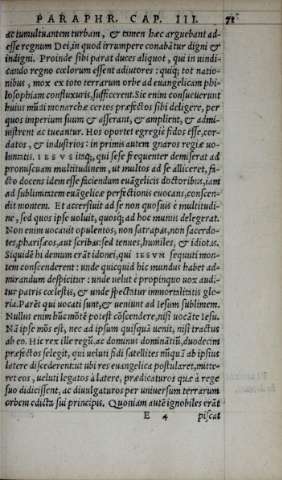 PARAPHR. CAP. III. 71
ac tumultuantem turbam, & tamen hæc arguebant ad-
esse regnum Dei, in quod irrumpere conabãtur digni &
indigni. Proinde sibi parat duces aliquot, qui in uindi-
cando regno cœlorum essent adiutores: quiq; tot natio-
nibus, mox ex toto terrarum orbe ad euangelicam phi-
losophiam confluxuris, sufficerent. Sic enim consueuerunt
huius mũdi monarchæ certos præfectos sibi deligere, per
quos imperium suum & asserant, & amplient, & admi-
nistrent ac tueantur. Hos oportet egregiè fidos esse, cor-
datos, & industrios: in primis autem gnaros regiæ uo-
luntatis. IESVS itaq;, qui sese frequenter demiserat ad
promiscuam multitudinem, ut multos ad se alliceret, fi-
cto docens idem esse faciendum euãgelicis doctoribus, iam
ad sublimitem euãgelicæ perfectionis euocans, conscen-
dit montem. Et accersiuit ad se non quosuis è multitudi-
ne, sed quos ipse uoluit, quosq; ad hoc munus delegerat.
Non enim uocauit opulentos, non satrapas, non sacerdo-
tes, pharisæos, aut scribas: sed tenues, humiles, & idiotas.
Siquidẽ hi demum erãt idonei, qui IESVM sequuti mon-
tem conscenderent: unde quicquid hic mundus habet ad-
mirandum despicitur: unde uelut è propinquo uox audi-
tur patris cœlestis, & unde spectatur immortalitatis glo-
ria. Parẽt qui uocati sunt, & ueniunt ad Iesum sublimem.
Nullus enim hũc mõtẽ potest cõscendere, nisi uocãte Iesu.
Nã ipse mõs est, nec ad ipsum quisquã uenit, nisi tractus
ab eo. Hic rex ille regũ, ac dominus dominãtiũ, duodecim
præfectos selegit, qui ueluti fidi satellites nũquã ab ipsius
latere discederent: ut ubi res euangelica postularet, mitte-
ret eos, ueluti legatos à latere, prædicaturos quæ à rege
suo didicissent, ac diuulgaturos per uniuersum terrarum
orbem edicta sui principis. Quoniam autẽ ignobiles erãt
E 4 piscat